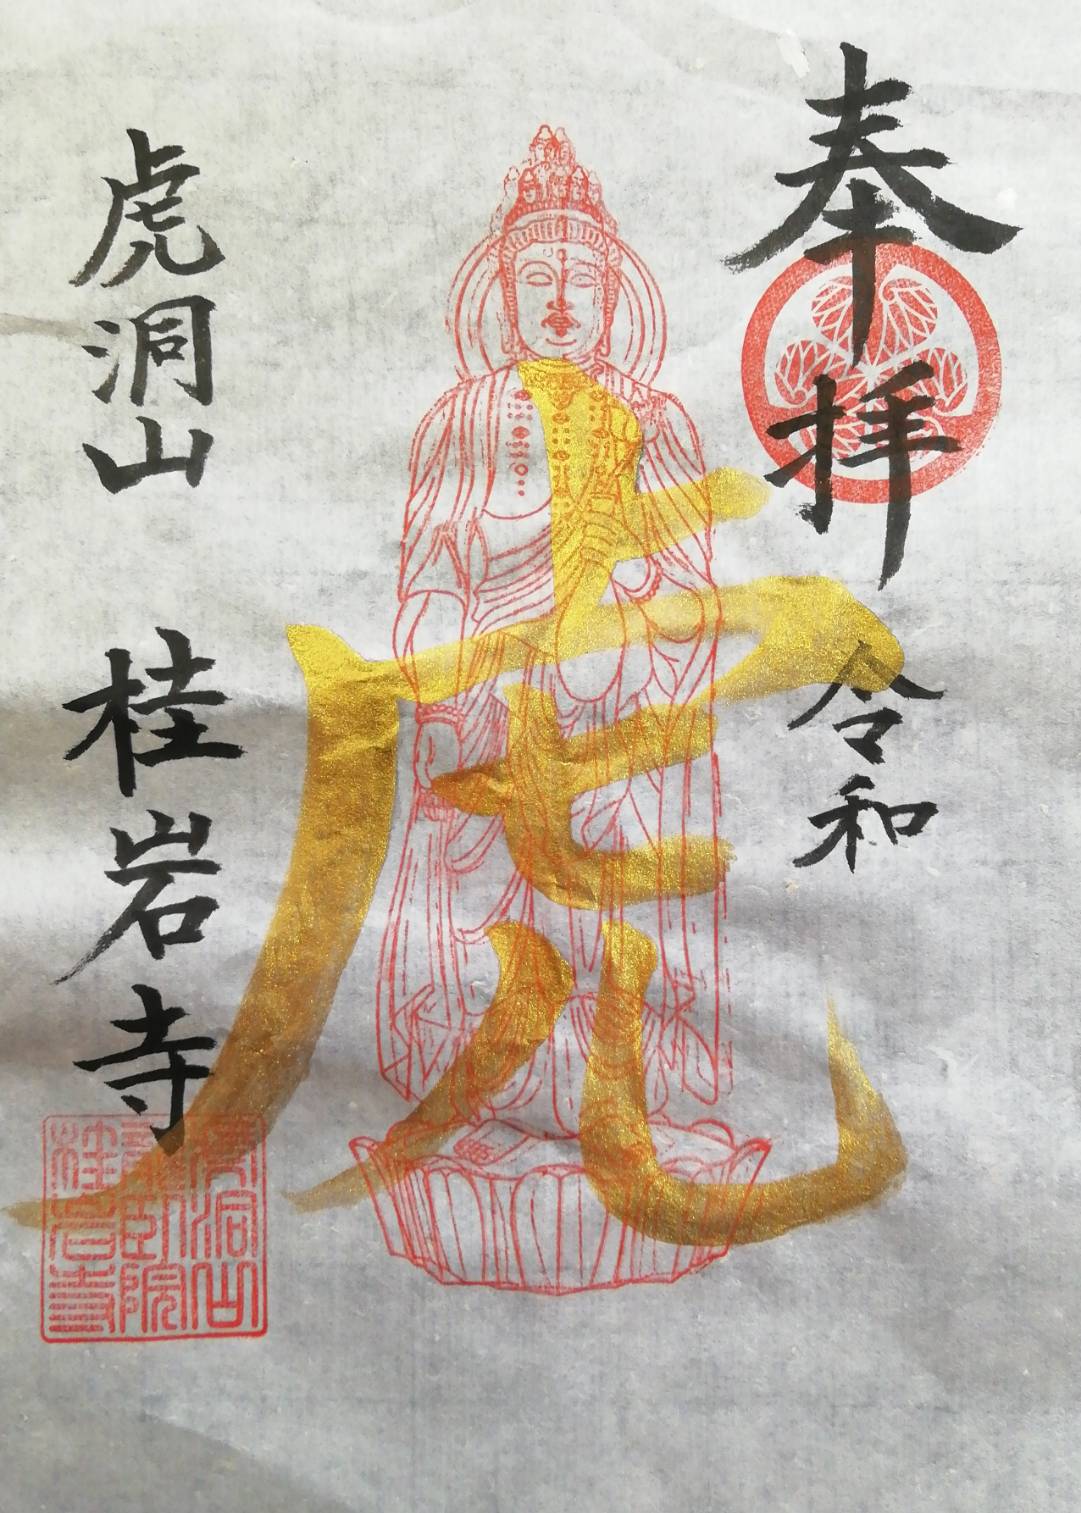 奉拝
令和
虎
虎洞山
桂岩寺
虎洞山
龍臥院
桂岩寺